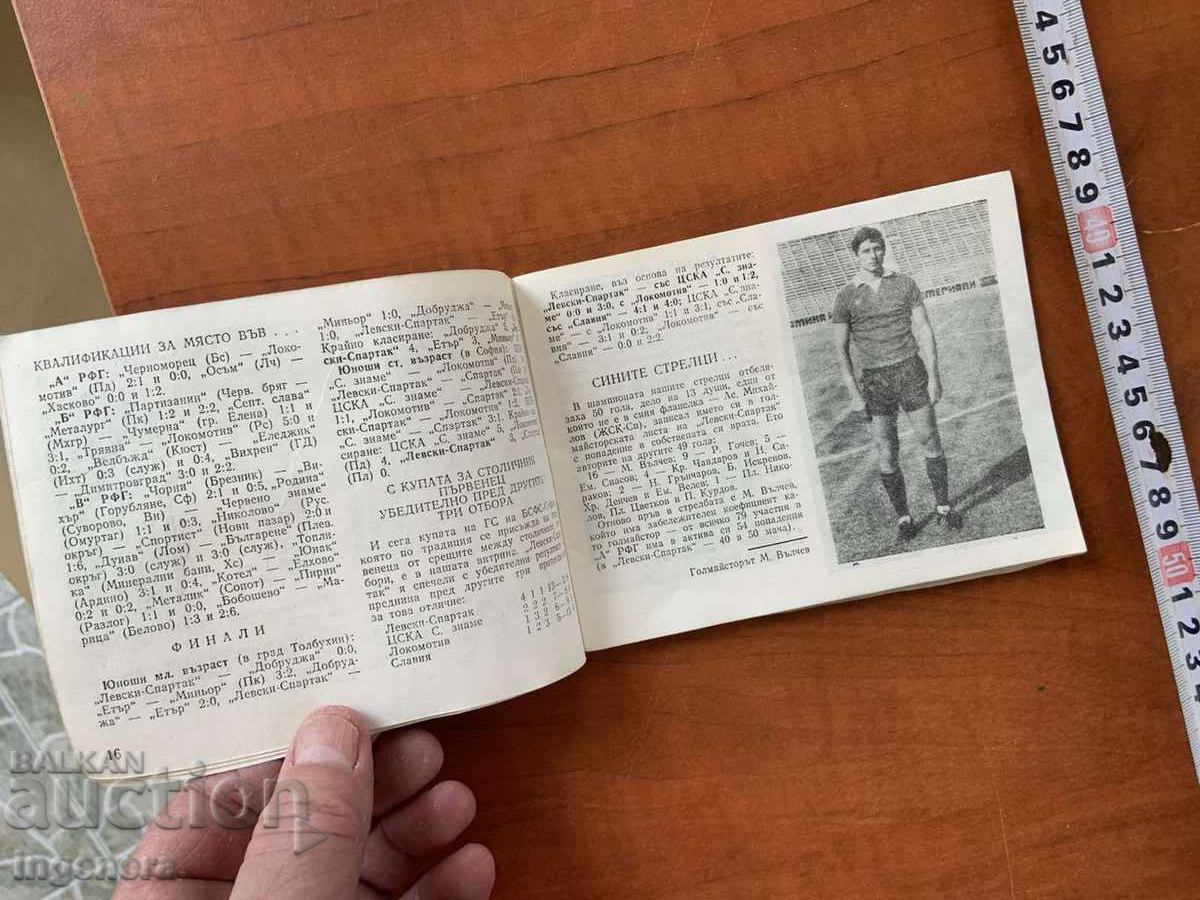 КВАЛИФИКАЦИИ ЗА МЯСТО ВЪВ . . .
„А" РФГ: Черноморец (Бс) — „Локо-
мотив" (Пд) 2:1 и 0:0, „Осъм" (Лч) —
„Хасково" 0:0 и 1:2.
„Б" РФГ: „Партизанин" (Черв. бряг —
„Металург" (Пк) 1:2 и 2:2, „Септ. слава"
(Мхгр) — „Чумерна" (гр. Елена) 1:1 и
3:1, „Трявна" — „Локомотив" (Рс) 5:0 и
0:2, „Велбъжд" (Кюст) — „Еледжик"
(Ихт) 0:3 (служ) и 0:4, „Вихрен" (ГД)
— „Димитровград" 3:0 и 2:2.
„В" РФГ: „Чорни" (Брезник) — „Ви-
хър" (Горубляне, Сф) 2:1 и 0:5, „Родина"
(Суворово, Вн) — „Червено знаме"
(Омуртаг) 1:1 и 0:3, „Николово" (Рус.
окръг) — „Спортист" (Нови пазар) 2:0 и
1:6, „Дунав" (Лом) — „Българене" (Плев.
окръг) 3:0 (служ) и 3:0 (служ), „Топли-
ка" (Минерални бани, Хс) — „Юнак"
(Ардино) 3:1 и 0:4, „Котел" — „Елхово"
0:2 и 0:2, „Металик" (Сопот) — „Пирин"
(Разлог) 1:1 и 0:0, „Бобошево" — „Ма-
рица" (Белово) 1:3 и 2:6.
ФИНАЛИ
Юноши мл. възраст (в град Толбухин):
„Левски-Спартак" — „Добруджа" 0:0,
„Етър" — „Миньор" (Пк) 3:2, „Добруд-
жа" — „Етър" 2:0, „Левски-Спартак" —
16
„Миньор" 1:0, „Добруджа" —
1:0, „Левски-Спартак" — „Етър"
Крайно класиране: „Добруджа"
ски-Спартак" 4, „Етър" 3, „Миньор"
Юноши ст. възраст (в София):
„С. знаме" — „Локомотив"
„Левски-Спартак" — „Спартак"
ЦСКА „С. знаме" — „Левски-Спартак"
1:1, „Локомотив" — „Спартак"
„Левски-Спартак" — „Локомотив"
„С. знаме" — „Спартак" 0:1. Крайно кла-
сиране: ЦСКА „С. знаме" 5, „Локомотив"
(Пд) 4, „Левски-Спартак" 3,
(Пл) 0.
С КУПАТА ЗА СТОЛИЧНИЯ
ПЪРВЕНЕЦ
УБЕДИТЕЛНО ПРЕД ДРУГИТЕ
ТРИ ОТБОРА
И сега купата на ГС на БСФС-София,
която по традиция се присъжда на
венеца от срещите между столичните
бори, е в нашата витрина. „Левски-Спар-
так" я спечели с убедителни резултати
преднина пред другите три
за това отличие:
Левски-Спартак
ЦСКА С. знаме
Локомотив
Славия
Класиране, въз основа на резултатите:
„Левски-Спартак" — със ЦСКА „С. зна-
ме" 0:0 и 3:0, с „Локомотив" — 1:0 и 1:2,
със „Славия" — 4:1 и 4:0; ЦСКА „С. зна-
ме" — с „Локомотив" 1:1 и 3:1, със „Сла-
вия" — 3:1 и 0:2, „Локомотив" — със
„Славия" — 0:0 и 2:2.
СИНИТЕ СТРЕЛЦИ . . .
В шампионата нашите стрелци отбеля-
заха 50 гола, дело на 13 души, един от
които не е в синя фланелка — Ле. Михай-
лов (ЖСК-Сп), записал името си в гол-
майсторската листа на „Левски-Спартак"
с попадение в собствената си врата. Ето
авторите на другите 49 гола:
16 — М. Вълчев; 9 — Р. Гочев; 5 —
Ем. Спасов; 4 — Кр. Чавдаров и Н. Си-
раков; 2 — Н. Грънчаров, Б. Искренов,
Хр. Денчев и Ем. Велев; 1 — Пл. Нико-
лов, Пл. Цветков и П. Курдов.
Отново пръв в стрелбата е М. Вълчев,
който има забележителен коефициент ка-
то голмайстор — от всичко 79 участия в
„А" РФГ има в актива си 54 попадения
(в „Левски-Спартак" — 40 в 50 мача).
Голмайсторът М. Вълчев
4 5 6 7 8 9 40 1 2 3 4 5 6 7 8 9 50 1 2 3 4
BALKAN
auction
ingenera